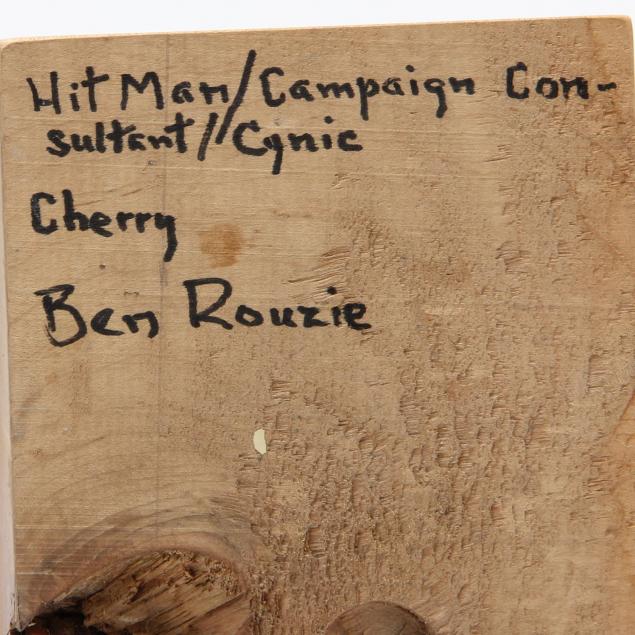 Hit Man/Campaign Con-
sultant//Cynic
Cherry
Ben Rouzie